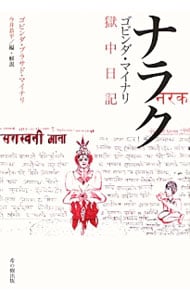 ナラク
नरक
ゴビンダ・マイナリ
獄中日記
ゴビンダ・プラサド・マイナリ
今井恭平/編・解説
सरस्वती माता
希の樹出版